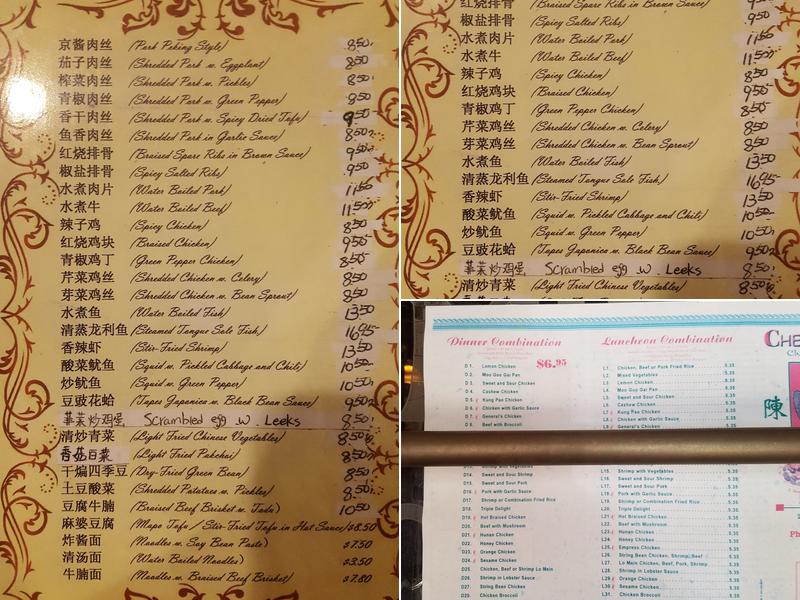 京酱肉丝 (Pork Peking Style) 8.50
茄子肉丝 (Shredded Pork w. Eggplant) 8.50
榨菜肉丝 (Shredded Pork w. Pickles) 8.50
青椒肉丝 (Shredded Pork w. Green Pepper) 8.50
香干肉丝 (Shredded Pork w. Spicy Dried Tofu) 9.50
鱼香肉丝 (Shredded Pork in Garlic Sauce) 8.50
红烧排骨 (Braised Spare Ribs in Brown Sauce) 9.50
椒盐排骨 (Spicy Salted Ribs) 9.50
水煮肉片 (Water Boiled Pork) 11.50
水煮牛 (Water Boiled Beef) 11.50
辣子鸡 (Spicy Chicken) 8.50
红烧鸡块 (Braised Chicken) 9.50
青椒鸡丁 (Green Pepper Chicken) 8.50
芹菜鸡丝 (Shredded Chicken w. Celery) 8.50
芽菜鸡丝 (Shredded Chicken w. Bean Sprout) 8.50
水煮鱼 (Water Boiled Fish) 13.50
清蒸龙利鱼 (Steamed Tongue Sole Fish) 16.95
香辣虾 (Stir-Fried Shrimp) 13.50
酸菜鱿鱼 (Squid w. Pickled Cabbage and Chili) 10.50
炒鱿鱼 (Squid w. Green Pepper) 10.50
豆豉花蛤 (Tapes Japonica w. Black Bean Sauce) 9.50
韭菜炒鸡蛋 Scrambled egg .w. Leeks 8.50
清炒青菜 (Light Fried Chinese Vegetables) 8.50
香菇白菜 (Light Fried Pakchoi) 8.50
干煸四季豆 (Dry-Fried Green Bean) 8.50
土豆酸菜 (Shredded Potatoes w. Pickles) 8.50
豆腐牛腩 (Braised Beef Brisket w. Tofu) 10.50
麻婆豆腐 (Mapo Tofu / Stir-Fried Tofu in Hot Sauce) $8.50
炸酱面 (Noodles w. Soy Bean Paste) $7.50
清汤面 (Water Boiled Noodles) $3.50
牛腩面 (Noodles w. Braised Beef Brisket) $7.80
红烧排骨 (Braised Spare Ribs in Brown Sauce) 9.50
椒盐排骨 (Spicy Salted Ribs) 9.50
水煮肉片 (Water Boiled Pork) 11.50
水煮牛 (Water Boiled Beef) 11.50
辣子鸡 (Spicy Chicken) 8.50
红烧鸡块 (Braised Chicken) 9.50
青椒鸡丁 (Green Pepper Chicken) 8.50
芹菜鸡丝 (Shredded Chicken w. Celery) 8.50
芽菜鸡丝 (Shredded Chicken w. Bean Sprout) 8.50
水煮鱼 (Water Boiled Fish) 13.50
清蒸龙利鱼 (Steamed Tongue Sole Fish) 16.95
香辣虾 (Stir-Fried Shrimp) 13.50
酸菜鱿鱼 (Squid w. Pickled Cabbage and Chili) 10.50
炒鱿鱼 (Squid w. Green Pepper) 10.50
豆豉花蛤 (Tapes Japonica w. Black Bean Sauce) 9.50
韭菜炒鸡蛋 Scrambled egg .w. Leeks 8.50
清炒青菜 (Light Fried Chinese Vegetables) 8.50
Dinner Combination
$6.95
D1. Lemon Chicken
D2. Moo Goo Gai Pan
D3. Sweet and Sour Chicken
D4. Cashew Chicken
D5. Kung Pao Chicken
D6. Chicken with Garlic Sauce
D7. General's Chicken
D8. Beef with Broccoli
D14. Sweet and Sour Shrimp
D15. Sweet and Sour Pork
D16. Pork with Garlic Sauce
D17. Shrimp or Combination Fried Rice
D18. Triple Delight
D19. Hot Braised Chicken
D20. Beef with Mushroom
D21. Hunan Chicken
D22. Honey Chicken
D23. Orange Chicken
D24. Sesame Chicken
D25. Chicken, Beef or Shrimp Lo Mein
D26. Shrimp in Lobster Sauce
D27. String Bean Chicken
Luncheon Combination
L1. Chicken, Beef or Pork Fried Rice 5.35
L2. Mixed Vegetables 5.35
L3. Lemon Chicken 5.35
L4. Moo Goo Gai Pan 5.35
L5. Sweet and Sour Chicken 5.35
L6. Cashew Chicken 5.35
L7. Kung Pao Chicken 5.35
L8. Chicken with Garlic Sauce 5.35
L9. General's Chicken 5.35
L15. Shrimp with Vegetables 5.35
L16. Sweet and Sour Shrimp 5.35
L17. Sweet and Sour Pork 5.35
L18. Pork with Garlic Sauce 5.35
L19. Shrimp or Combination Fried Rice 5.35
L20. Triple Delight 5.35
L21. Hot Braised Chicken 5.35
L22. Beef with Mushroom 5.35
L23. Hunan Chicken 5.35
L24. Honey Chicken 5.35
L25. Empress Chicken 5.35
L26. String Bean Chicken, Shrimp, Beef 5.35
L27. Lo Mein Chicken, Beef, Pork, Shrimp 5.35
L28. Shrimp in Lobster Sauce 5.35
L29. Orange Chicken 5.35
L30. Sesame Chicken 5.35
陳